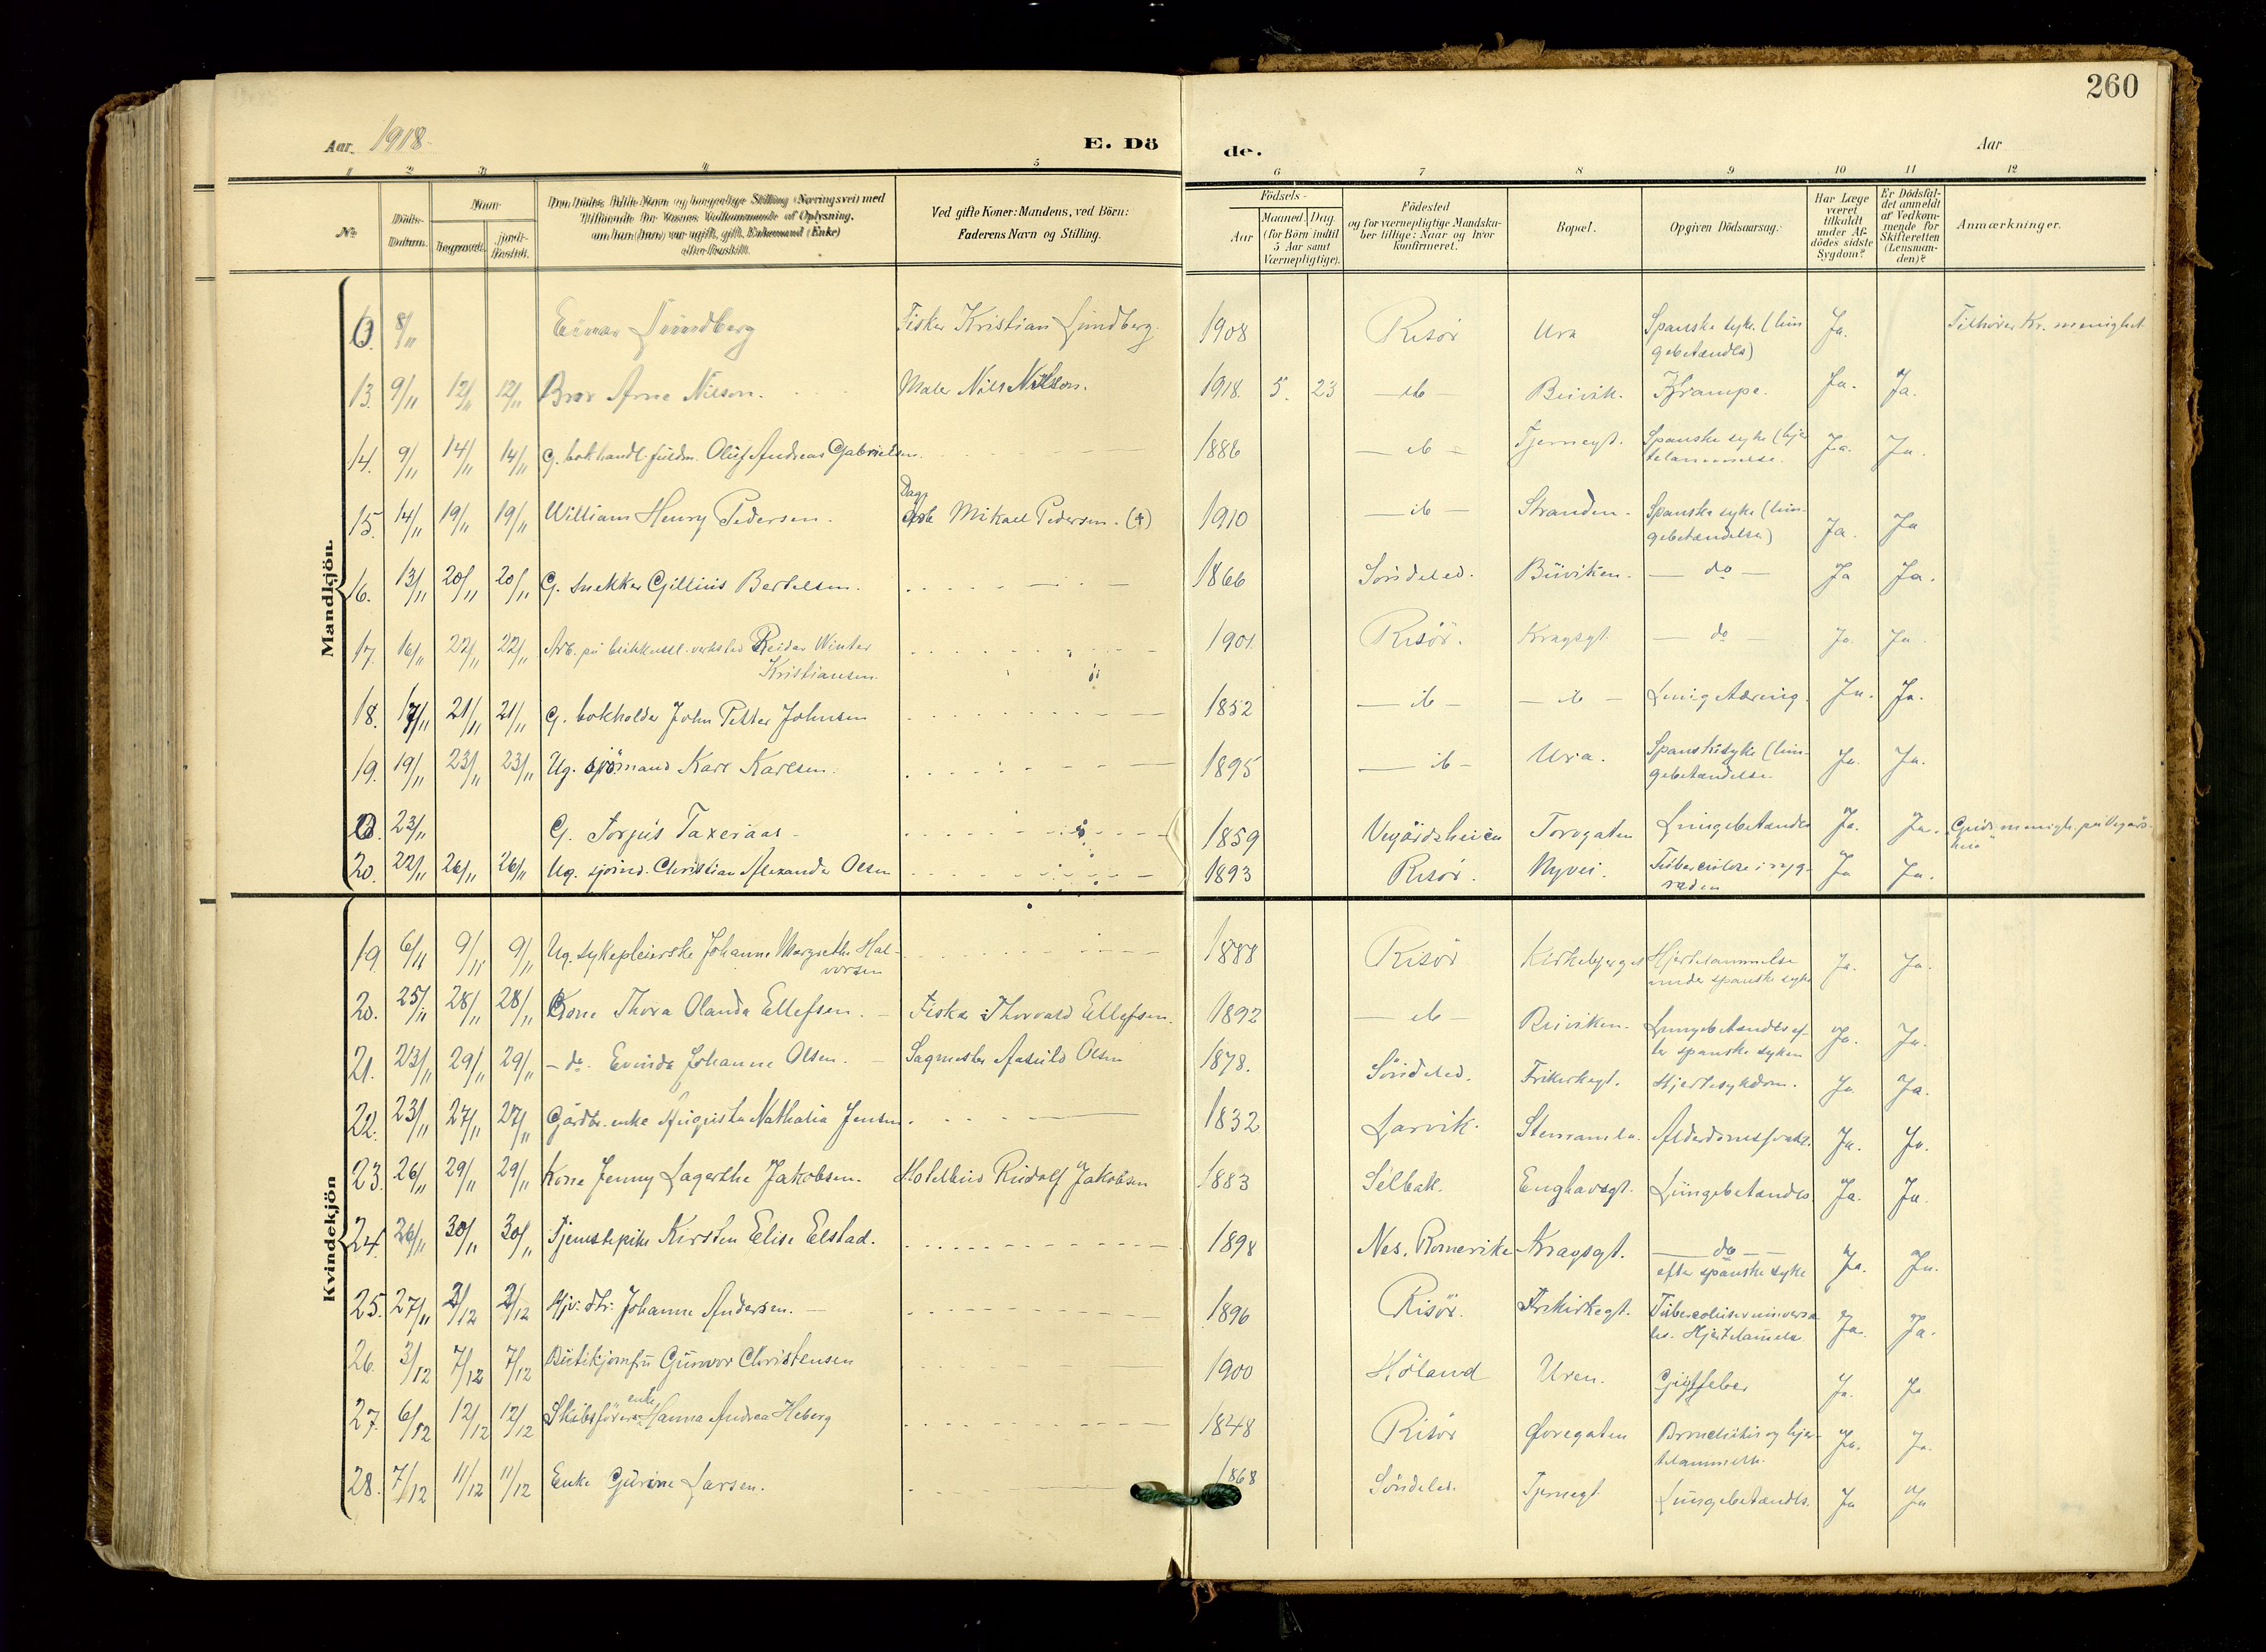 260
Aar 1918.
E. Dö
de.
Aar
1 2 3 4 5 6 7 8 9 10 11 12
No
Döds-
Datum.
Naar
begravet.
jord-
fæstet.
Den Dödes fulde Navn og borgerlige Stilling (Næringsvei) med
am han (hun) var ugift, gift, Enkemand (Enke)
eller fraskilt.
Ved gifte Koner: Mandens, ved Börn:
Faderens Navn og Stilling.
Födsels-
Aar
Maaned. Dag.
(for Börn indtil
5 Aar samt
Værnepligtige).
Födested
og for værnepligtige Mandska-
ber tillige: Naar og hvor
konfirmeret.
Bopæl.
Opgiven Dödsaarsag.
Har Læge
været
tilkaldt
under Af-
dödes sidste
Sygdom?
Er Dödsfal-
det anmeldt
af Vedkom-
mende for
Skifteretten
(Lensman-
den)?
Anmærkninger.
Mandkjön.
0. 8/11 Einar Lundberg Fisker Kristian Lundberg. 1908 Risör Ura Spanske syke (lun-
gebetændls) Ja. Tilhörer Kr. menighet
13. 9/11 12/11 12/11 Bror Arne Nilson. Maler Nils Nilson. 1918. 5. 23 — ib — Buvik. Krampe. Ja. Ja.
14. 9/11 14/11 14/11 G. bokhandl. fuldm. Oluf Andreas Gabrielsen. 1886 — ib — Tjernegt. Spanske syke (hjer
telammelse. Ja. Ja.
15. 14/11 19/11 19/11 William Henry Pedersen. Dag
Mikael Pedersen. (†) 1910 — ib — Stranden. Spanske syke (lun-
gebetændelse) Ja. Ja
16. 13/11 20/11 20/11 G. Snekker Gillius Bertelsen. 1866 Söndeled. Buviken. — do — Ja Ja.
17. 16/11 22/11 22/11 Arb. på blikkvall. verksted Reidar Winter
Kristiansen. 1901 Risör. Kragsgt. — do — Ja. Ja.
18. 17/11 21/11 21/11 G. bokholder John Petter Johnsen 1852 — ib — — ib — Lungetæring. Ja. Ja.
19. 19/11 23/11 23/11 Ug. sjömand Karl Karlsen. 1895 — ib — Ura. Spanskesyke (lun-
gebetændelse. Ja. Ja.
0. 23/11 G. Torjus Taxeraas 1859 Vegårdsheien Torvgaten Lungebetændls Ja. Ja. menigh. på Vegårds-
hei"
20. 22/11 26/11 26/11 Ug. sjömd. Christian Alexander Olsen 1893 Risör. Nyvei. Tuberculose i ryg-
raden Ja Ja.
Kvindekjön
19. 6/11 9/11 9/11 Ug. sykepleierske Johanne Margrethe Hal-
vorsen 1888 Risör Kirkebjerget Hjertelammelse
under spanske syke Ja. Ja.
20. 25/11 28/11 28/11 Kone Thora Olanda Ellefsen. Fisker Thorvald Ellefsen. 1892 — ib — Buviken. Lungebetændls ef-
ter spanske syken Ja. Ja.
21. 23/11 29/11 29/11 - do. Evinda Johanne Olsen. Sagmester Aasuld Olsen 1878. Söndeled. Frikirkegt. Hjertesykdom. Ja Ja.
22. 23/11 27/11 27/11 Gårdbr. enke Augusta Nathalia Jensen. 1832 Larvik. Alderdomssvakh. Ja. Ja.
23. 26/11 29/11 29/11 Kone Jenny Lagertha Jakobsen. Rudolf Jakobsen 1883 Selbak. Enghavsgt. Lungebetændls Ja. Ja.
24. 26/11 30/11 30/11 Tjenestepike Kirsten Elise Elstad. 1898 Nes. Romerike Kragsgt. — do —
efter spanske syke Ja. Ja.
25. 27/11 2/12 2/12 Hjv. dtr. Johanne Andersen. 1896 Risör. Frikirkegt. Tuberculose universa
les. Hjertelamels. Ja. Ja.
26. 3/12 7/12 7/12 Butikjomfru Gunvor Christensen 1900 Höland Uren. Gigtfeber Ja. Ja
27. 6/12 12/12 12/12 Skibsförer enke Hanna Andrea Heberg 1848 Risör Övregaten Bronchitis og hjer-
telammelse. Ja. Ja.
28. 7/12 11/12 11/12 Enke Gurine Larsen. 1868 Söndeled. Tjernegt. Lungebetændls. Ja Ja